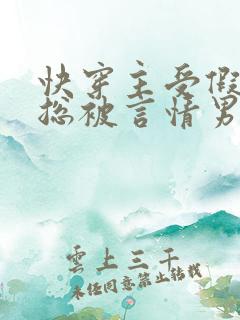 快穿主受假
总被言情男
雲上三千
未经同意禁止转载